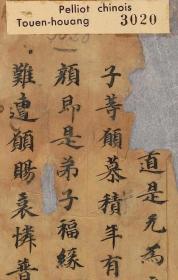 Pelliot chinois
Touen-houang 3020
道是无為
子等願慕積年有
顔即是弟子福緣
難遭願賜哀憐普